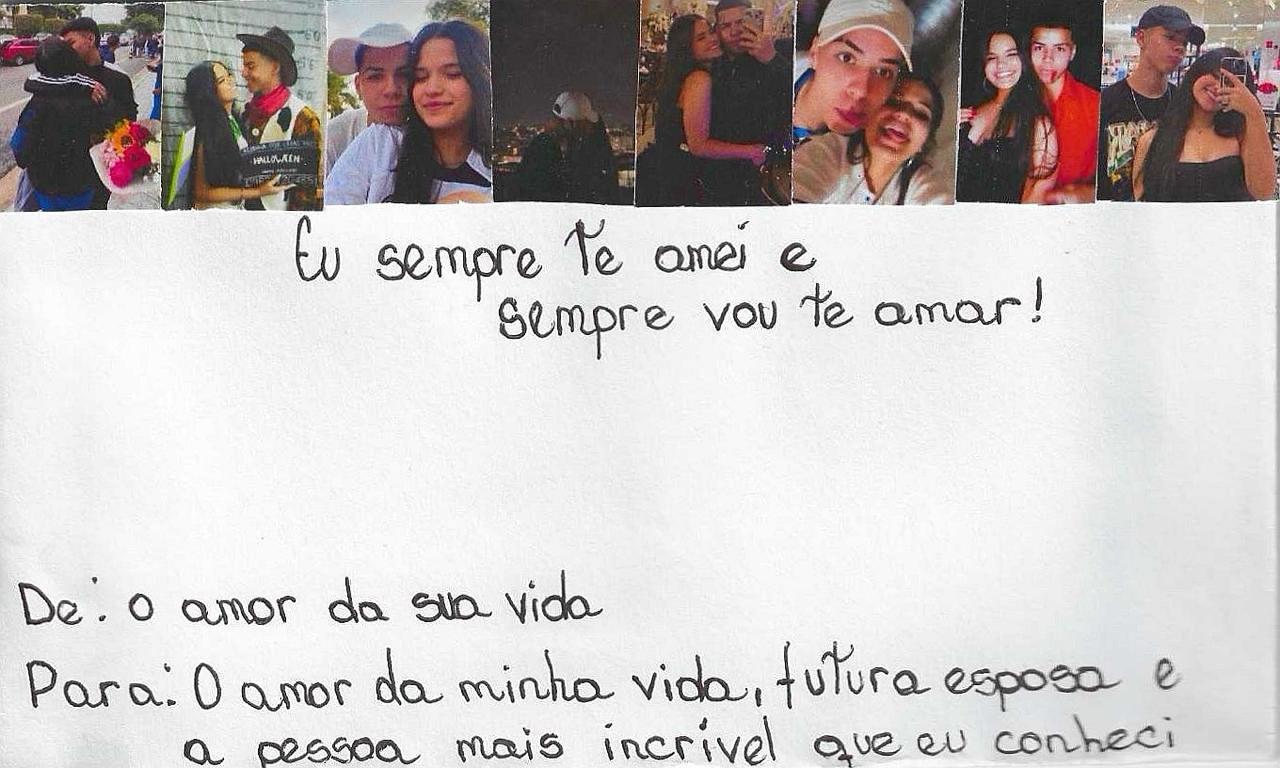 HALLOWEEN
Eu sempre te amei e
sempre vou te amar!
De: o amor da sua vida
Para: O amor da minha vida, futura esposa e
a pessoa mais incrível que eu conheci